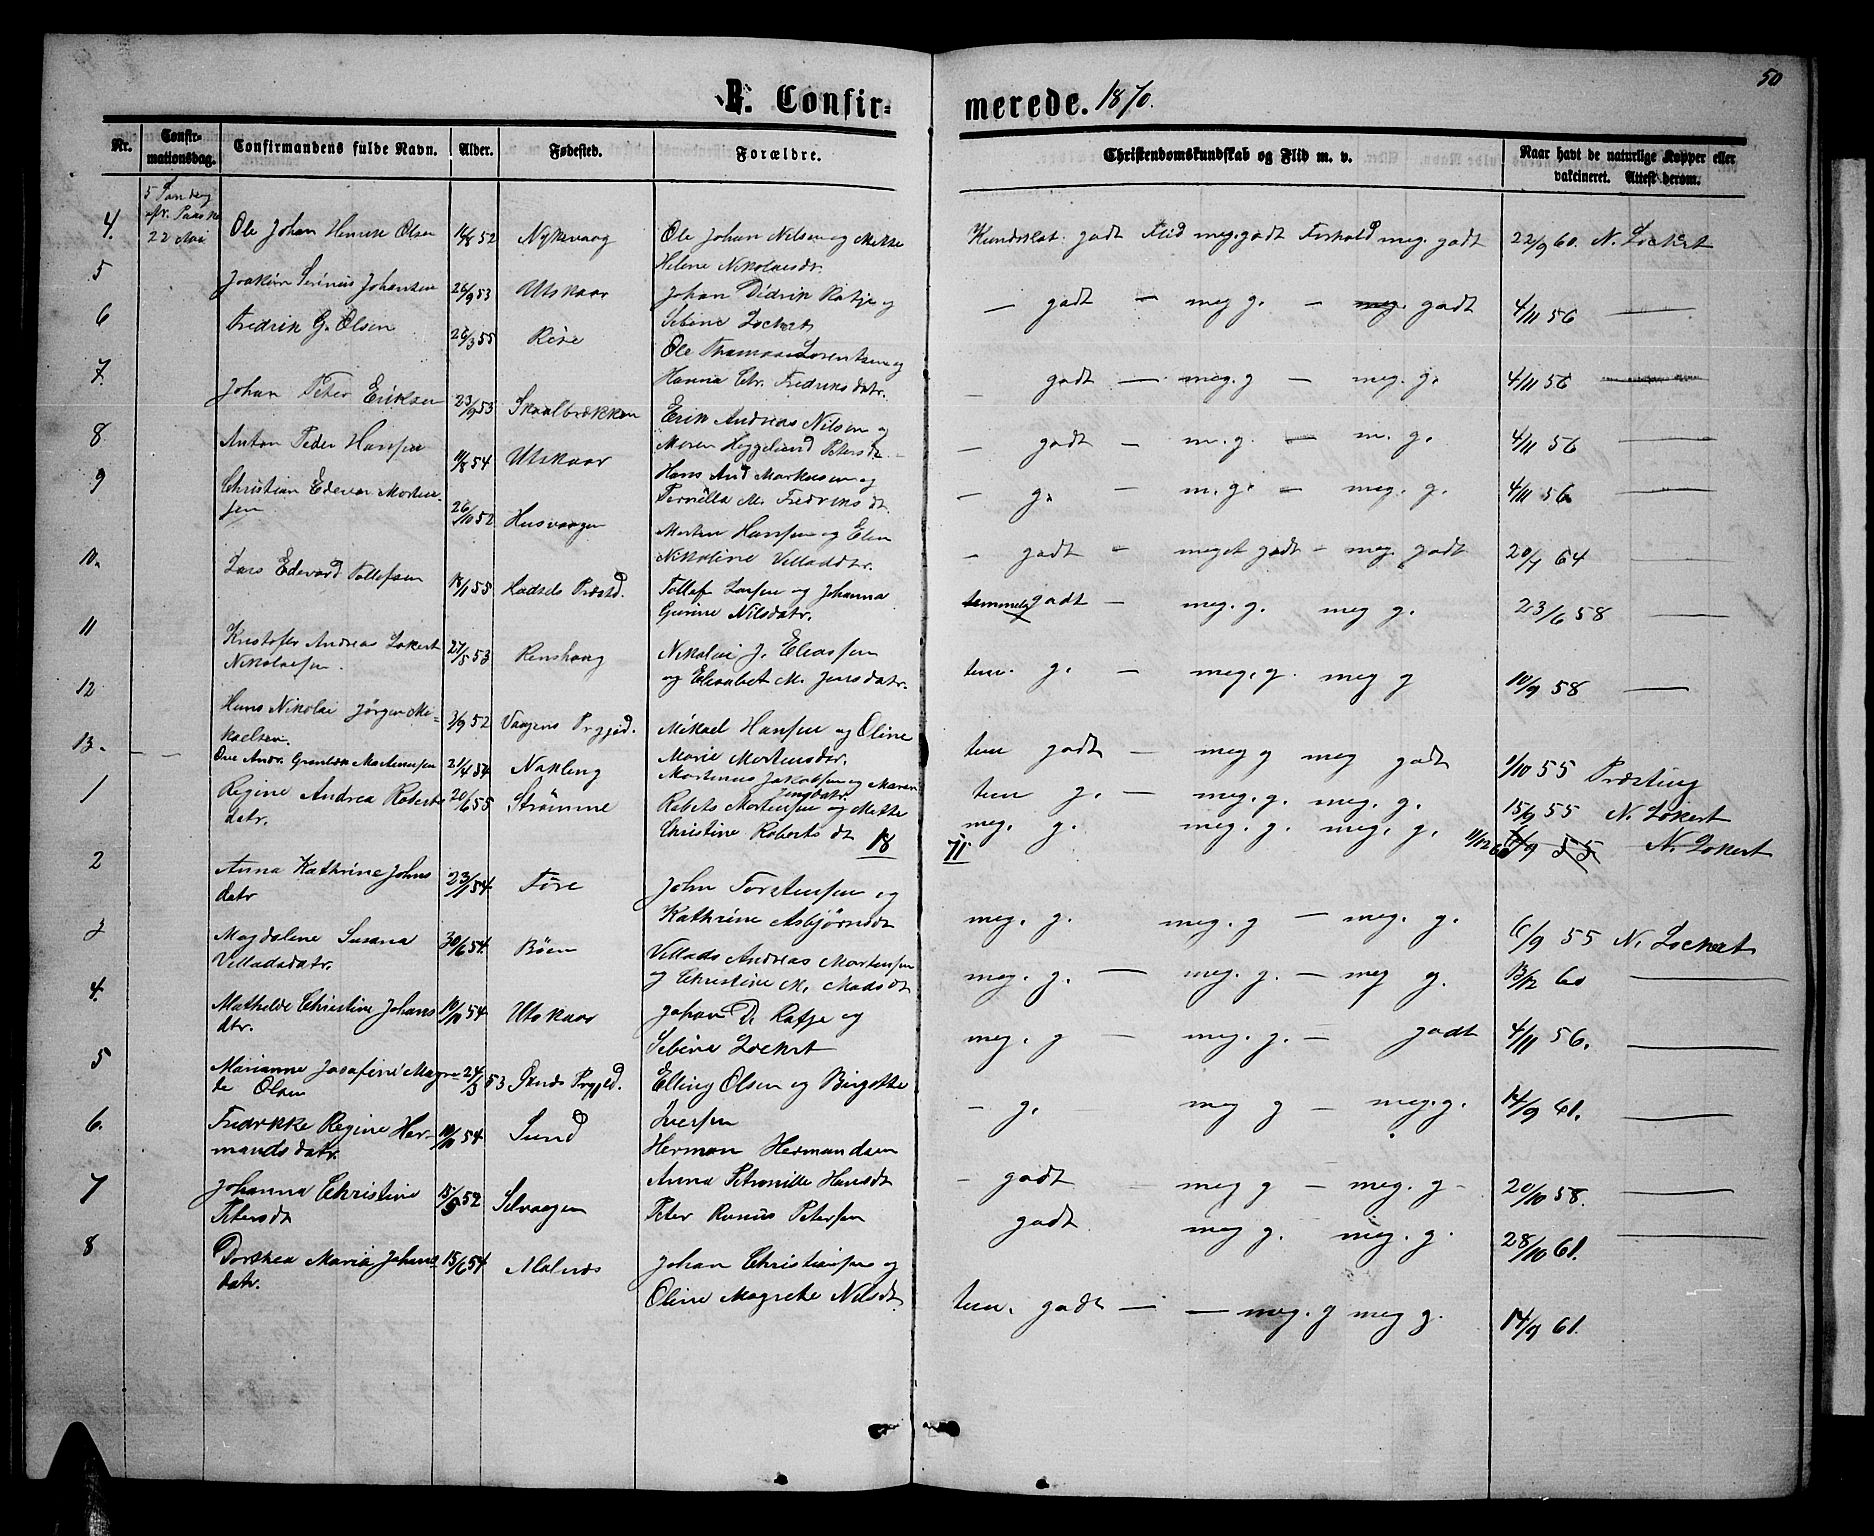 50
B. Confir-
merede. 1870.
Nr.
Confir-
mationsdag.
Confirmandens fulde Navn.
Alder.
Fødested.
Forældre.
Christendomskundskab og Flid m. v.
Naar havt de naturlige Kopper eller
vakcineret. Attest derom.
5 Søndag
22 Mai
4. Ole Johan Henrik Olsen 14/8 52 Nykvaag Ole Johan Nilsen og Mette
Helene Nikolaisdr.
Kundskab godt Flid meg. godt Forhold meg. godt 22/9 60. N. Lockert
5 Joakim Serinus Johansen 26/9 53 Utskaar Johan Didrik Ratje og
Sebine Lockert
— godt — meg g. — meg. godt 4/11 56 —
6 Fredrik G. Olsen 26/3 55 Rise Ole Thomas Lorentsen og
Hanna Chr. Fredriksdatr.
— godt — meg. g — meg. g. 4/11 56 —
7. Johan Peter Eriksen 23/9 53 Skaalbrækken Erik Andreas Nilsen og
Maren Heggelund Petersdt
— godt — m. g. — m. g. 4/11 56 —
8 Anton Peder Hansen 11/8 54 Utskaar Hans And Markusen og
Pernilla M. Fredriksdt
— g. — m. g. — meg. g. 4/11 56 —
9 Christian Edevar Morten-
sen 26/10 52 Husvaagen Morten Hansen og Elen
Nikoline Villaddtr.
— godt — meget godt — meg. godt 20/7 64 —
10. Lars Edevard Tollefsen 18/1 55 Hadsels Præstd. Tollef Larsen og Johanna
Gurine Nilsdatr.
temmelig godt — meg. g. meg g. 23/6 58 —
11 Kristofer Andreas Lokert
Nikolaisen. 27/5 53 Renshaug Nikolai J. Eliassen
og Elisabet M. Jensdatr.
tem. g. — meg. g. meg g 10/9 58 —
12 Hans Nikolai Jörgen Mi-
kaelsen. 3/9 52 Vaagens Prgjæld. Mikael Hansen og Oline
Marie Mortensdatr.
tem godt — meg g meg godt 1/10 55 Præsting
13. — — Ove Andr. Grønbek Martinusen 21/4 54 Nakling Martinus Jakobsen og Maren
Jensdatr.
tem g. — meg. g. meg. g. 15/9 55 N. Lokert
1 Regine Andrea Roberts
datr. 20/6 55 Strømme Roberts Mortensen og Mette
Christine Roberts dt 18
71
meg. g. meg. g. meg. g. 11/12 60 6/9 55 N. Lokert
2 Anna Kathrine Johns
datr 23/1 54 Føre John Torstensen og
Kathrine Asbjörnsdt
meg. g. meg. g — meg. g. 6/9 55 N. Lockert
3 Magdalene Susana
Villadsdatr. 30/6 54 Böen Villads Andreas Mortensen
og Christine M. Madsdt
meg. g. — meg. g. — meg g. 13/12 60 —
4. Mathilde Christine Johans
dtr. 10/10 54 Utskaar Johan D. Ratje og
Sebine Lockert
meg. g — meg. g. — godt 4/11 56. —
5 Marianne Josefine Magre-
te Olsen 24/3 53 Øxnes Prgjld. Elling Olsen og Birgitte
Iversen
— g. meg g — meg. g. 14/9 61. —
6. Fredrikke Regine Her-
mandsdatr. 10/11 54. Sund Herman Hermandsen
Anna Petronille Hansdt
— godt — meg g — meg. g — 20/10 58. —
7 Johanna Christine
Petersdt 15/5 52 Selvaagen Peter Rinus Petersen
godt meg g. meg. g. 28/10 61. —
8 Dorthea Maria Johans
datr. 15/6 54 Malnæs Johan Christiansen og
Oline Magrete Nilsdt
tem. godt — — meg. g meg g. 14/9 61.